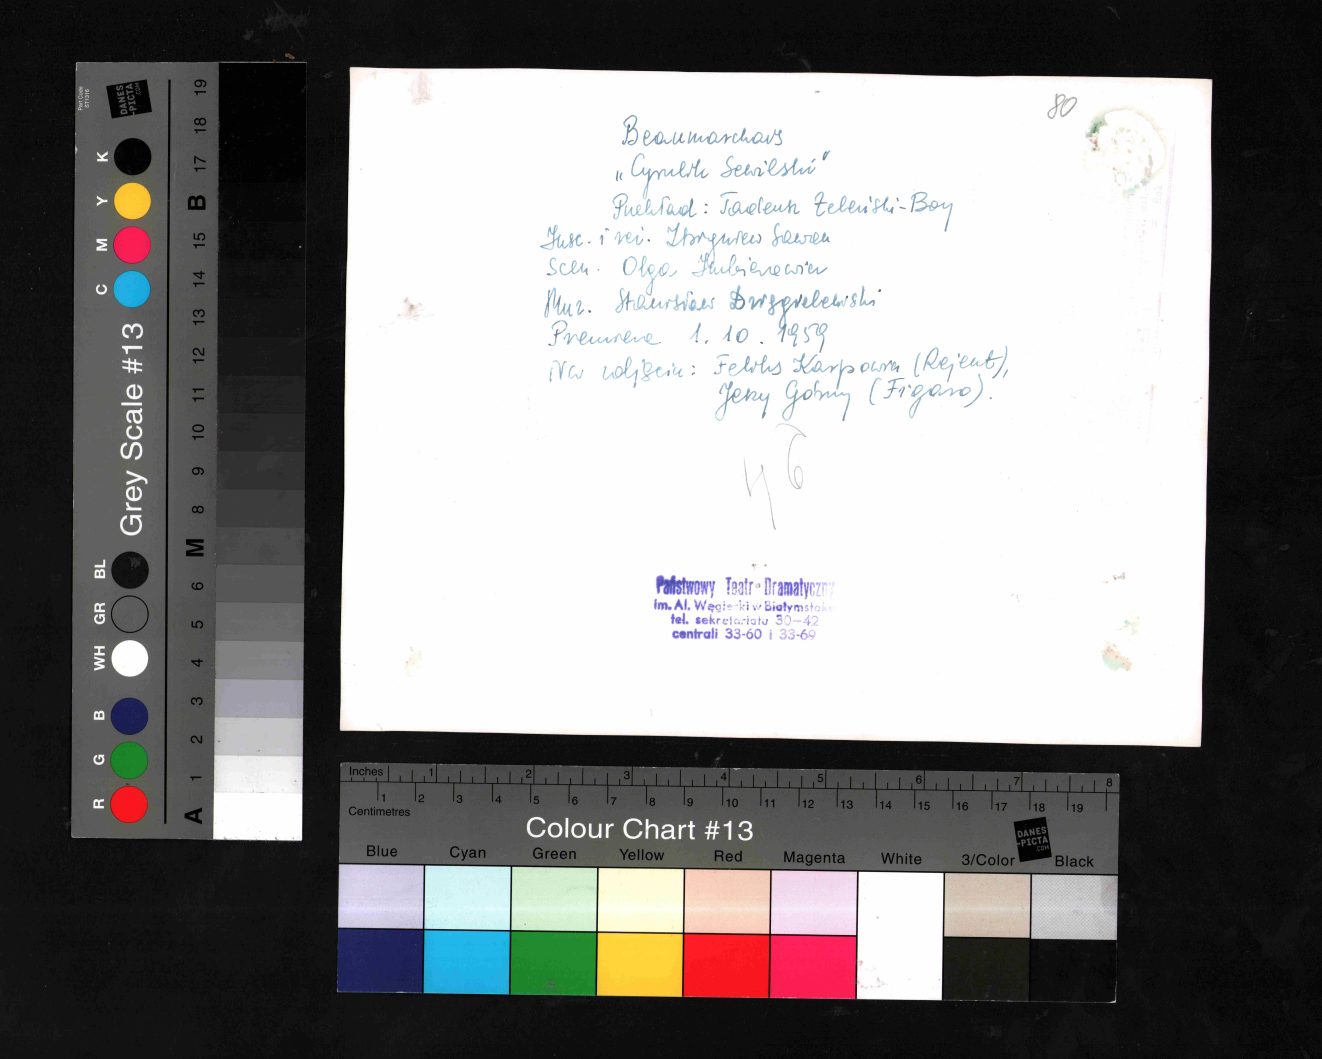 80
Beaumarchais
„Cyrulik Sewilski"
Przekład: Tadeusz Żeleński-Boy
Insc. i reż. Zbigniew Sawan
Scen. Olga
Muz. Stanisław
Premiera 1. 10. 1959
Na zdjęciu: Feliks Karpowicz (Rejent),
Jerzy Górny (Figaro).
Państwowy Teatr Dramatyczny
im. Al. Węgierki w Białymstoku
tel. sekretariatu 30-42
centrali 33-60 i 33-69
Part Code
ST1316
DANES
-PICTA
.COM
Grey Scale #13
K
Y
M
C
BL
GR
WH
B
G
R
19
18
17
B
15
14
13
12
11
10
9
8
M
6
5
4
3
2
1
A
Inches 1 2 3 4 5 6 7 8
1 2 3 4 5 6 7 8 9 10 11 12 13 14 15 16 17 18 19
Centimetres
Colour Chart #13
DANES
-PICTA
.COM
Blue Cyan Green Yellow Red Magenta White 3/Color Black